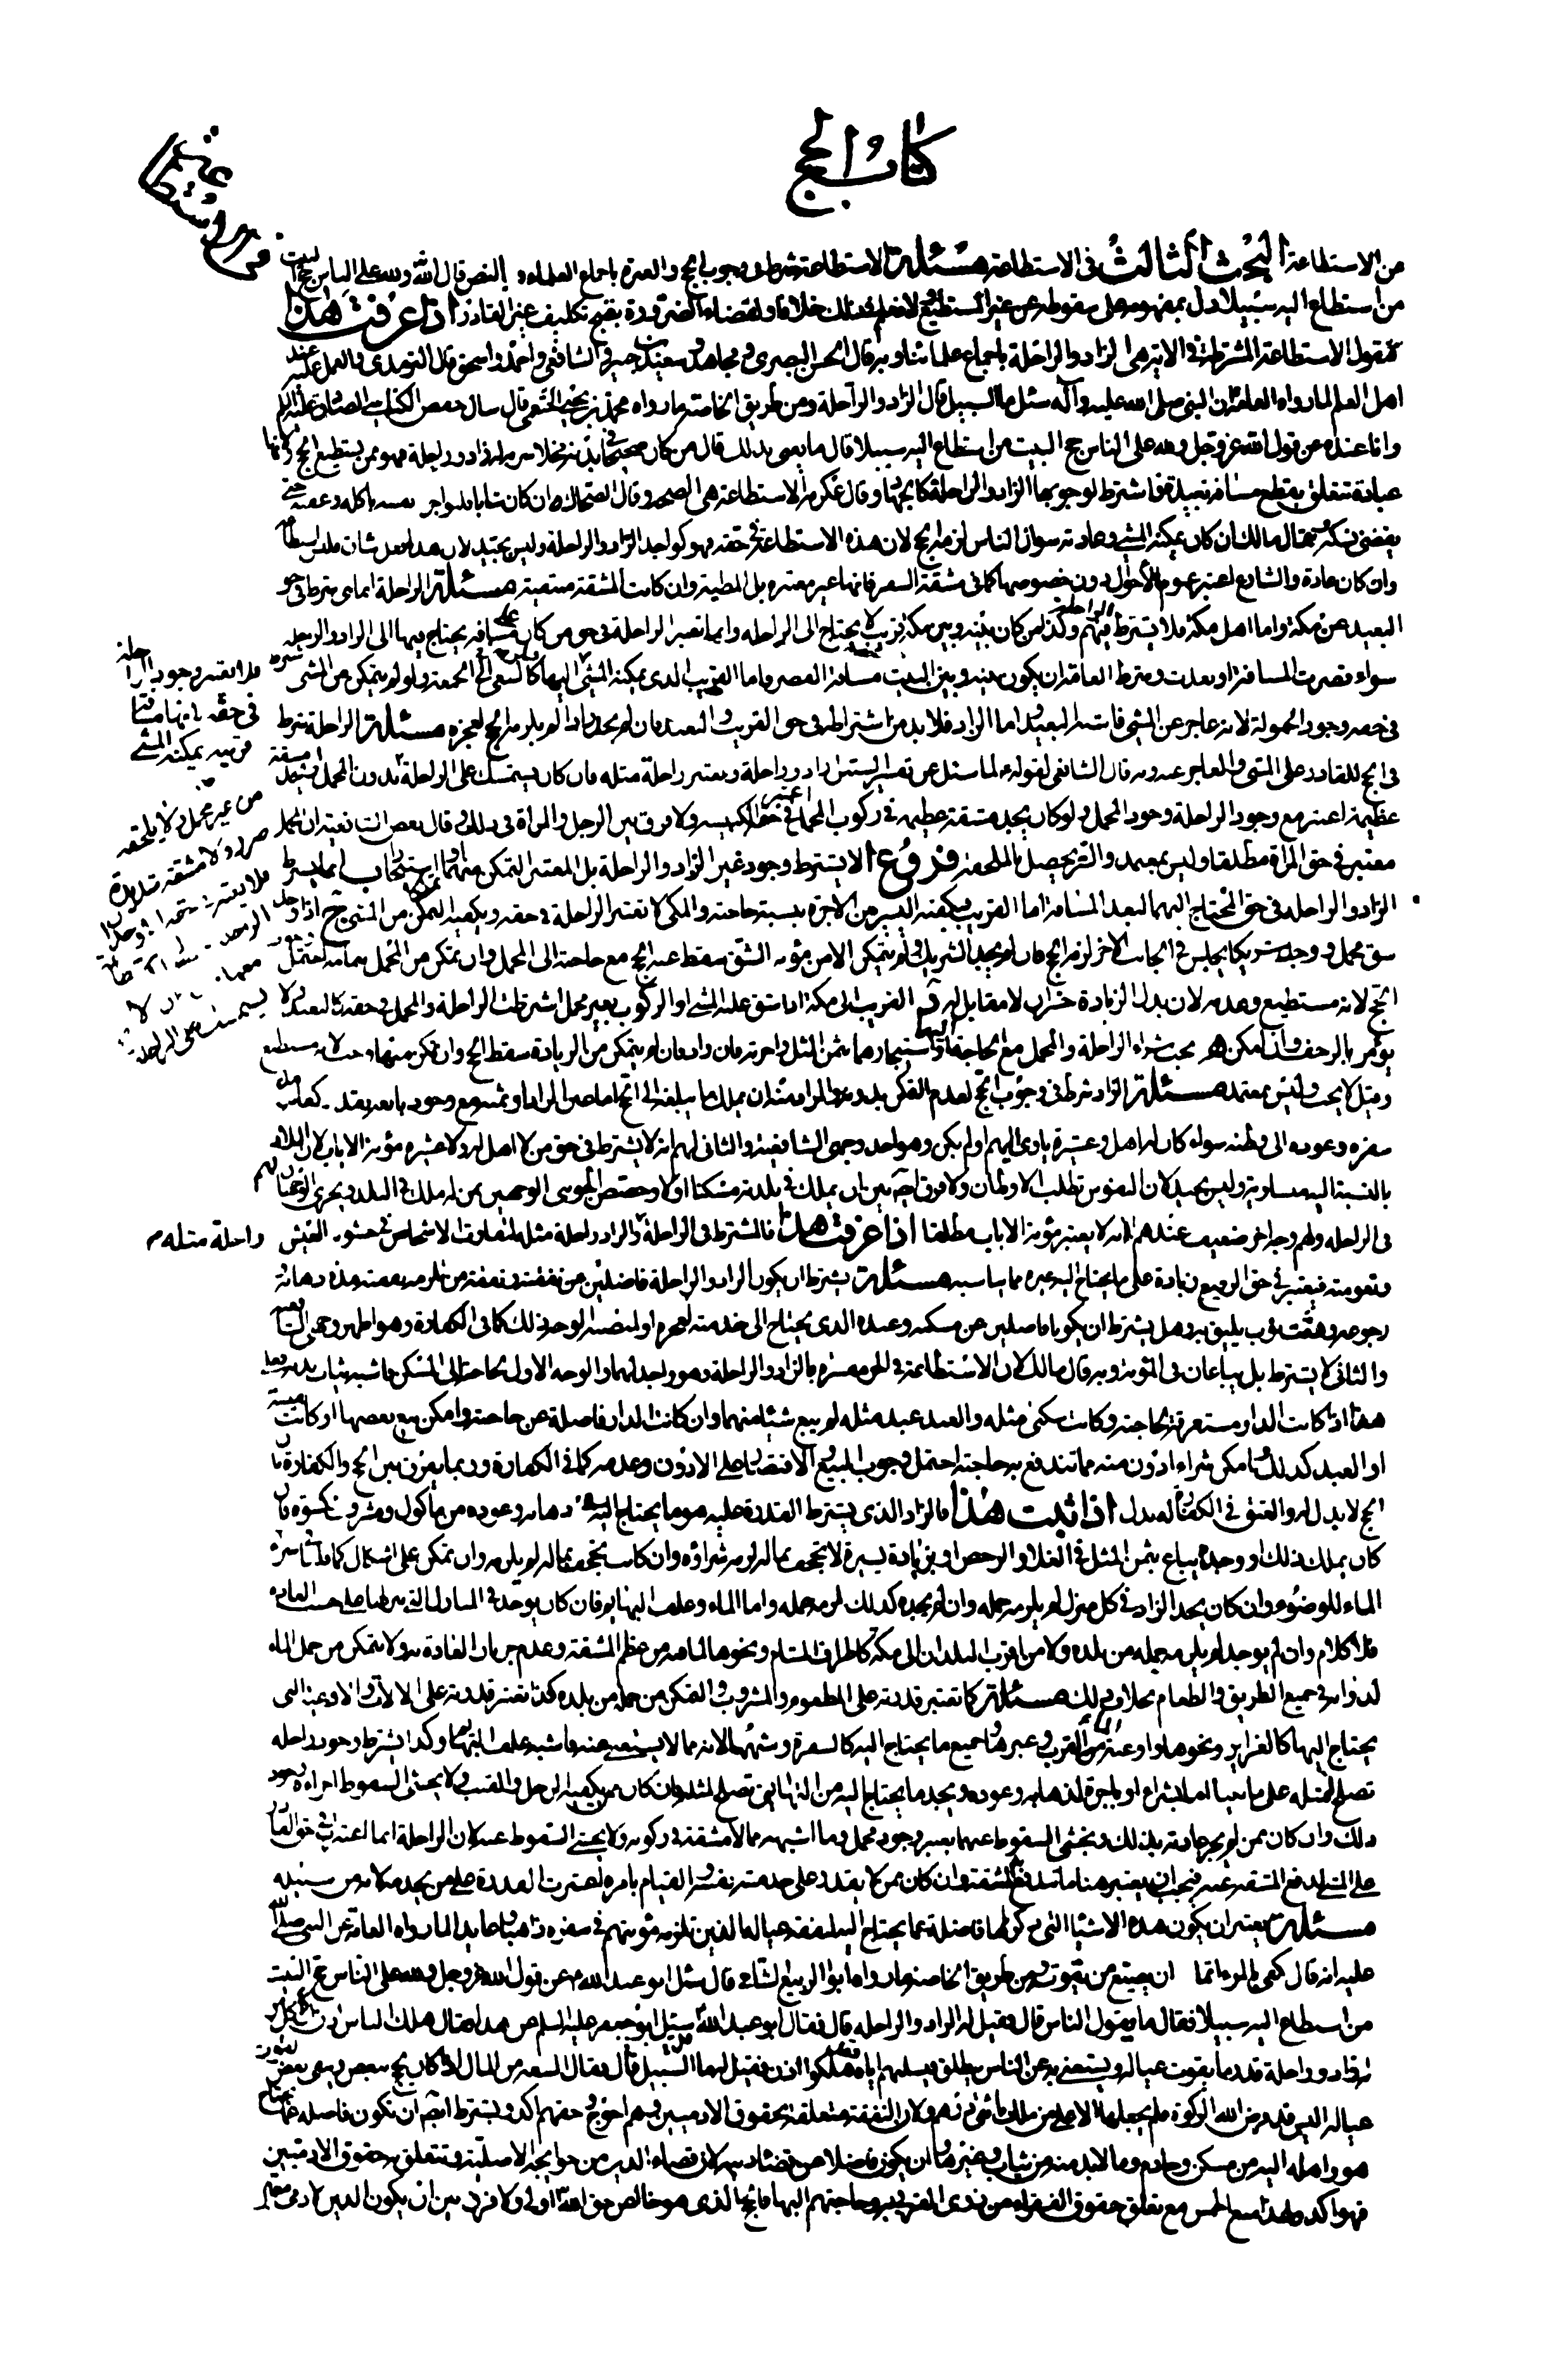 كتاب الحج
في اشتراط
من الاستطاعة البحث الثالث في الاستطاعة مسئلة الاستطاعة شرط في وجوب الحج والعمرة باجماع العلماء و بالنص قال الله ولله على الناس حج البيت
من استطاع اليه سبيلا دل بمفهومه على سقوطه عن غير المستطيع ولا نعلم في ذلك خلافا ولقضاء الضرورة بقبح تكليف غير القادر اذا عرفت هذا
فنقول الاستطاعة المشترطة في الاية هي الزاد والراحلة باجماع علمائنا وبه قال الحسن البصري ومجاهد وسعيد بن جبير والشافعي واحمد واسحق قال الترمذي والعمل عليه عند
اهل العلم لما رواه العامة ان النبي صلى الله عليه وآله سئل ما السبيل قال الزاد والراحلة ومن طريق الخاصة ما رواه محمد بن يحيى الخثعمي قال سال حفص الكناسي الصادق عليه السلم
وانا عنده عن قول الله عز وجل ولله على الناس حج البيت من استطاع اليه سبيلا قال ما يعني بذلك قال من كان صحيحا في بدنه مخلا سربه له زاد وراحلة فهو ممن يستطيع الحج ولانها
عبادة تتعلق بقطع مسافة بعيدة فاشترط لوجوبها الزاد والراحلة كالجهاد وقال عكرمة الاستطاعة هي الصحة وقال الضحاك ان كان شابا فليواجر نفسه باكله وعقبه حتى
يقضي نسكه وقال مالك ان كان يمكنه المشي وعادته سوال الناس لزمه الحج لان هذه الاستطاعة في حقه فهو كواجد الزاد والراحلة وليس بجيد لان هذا فعل شاق فليس استطاعة
وان كان عادة والشارع اعتبر عموم الاحوال دون خصوصها كما في مشقة السفر فانها غير معتبرة بل المظنة وان كانت المشقة منتفية مسئلة الراحلة انما هي شرط في حق
البعيد عن مكة واما اهل مكة فلا يشترط فيهم الراحلة وكذا من كان بينه وبين مكة قريب لا يحتاج الى الراحلة وانما تعتبر الراحلة في حق من كان على مسافة يحتاج فيها الى الزاد والراحلة
سواء قصرت المسافة او بعدت وشرط العامة ان يكون بينه وبين البيت مسافة القصر واما القريب الذي يمكنه المشي اليها كالسعي الى الجمعة ولو لم يتمكن من المشي
فلا يعتبر وجود الراحلة
في حقه لانها مسافة
قريبة يمكنه المشي
في حقه وجود الحمولة لانه عاجز عن المشي فاشبه البعيد اما الزاد فلا بد من اشتراطه في حق القريب والبعيد فان لم يجد زادا لم يلزمه الحج لعجزه مسئلة الراحلة شرط
في الحج للقادر على المشي والعاجز عنه وبه قال الشافعي لقوله ع لما سئل عن تفسير السبيل زاد وراحلة ويعتبر راحلة مثله فان كان يستمسك على الراحلة بدون المحمل
من غير محمل ولا يلحقه
ضرر ولا مشقة شديدة
عظيمة اعتبر مع وجود الراحلة وجود المحمل ولو كان يجد مشقة عظيمة في ركوب المحمل اعتبر في حقه الكنيسة ولا فرق بين الرجل والمراة في ذلك وقال بعض الشافعية ان المحمل
معتبر في حق المراة مطلقا وليس بمعتمد والستر يحصل بالملحفة فروع ا لا يشترط وجود غير الزاد والراحلة بل المعتبر التمكن منهما
الزاد والراحلة في حق المحتاج اليهما لبعد المسافة اما القريب فيكفيه اليسير من الاجرة بنسبة حاجته والمكي لا تعتبر الراحلة في حقه ويكفيه التمكن من المشي ج اذا وجد
شق محمل ووجد شريكا يجلس في الجانب الاخر لزمه الحج فان لم يجد الشريك ولم يتمكن الا من مؤنة الشق سقط عنه الحج مع حاجته الى المحمل وان تمكن من المحمل بتمامه احتمل
الحج لانه مستطيع وعدمه لان بذل الزيادة خسران لا مقابل له د القريب الى مكة اذا شق عليه المشي او الركوب بغير محمل اشترطت الراحلة والمحمل في حقه كالبعيد ولا
يستمسك على الراحلة
يؤمر بالزحف وان امكن ه يجب شراء الراحلة والمحمل مع الحاجة اليه او استيجارهما بثمن المثل واجرته فان زاد فان لم يتمكن من الزيادة سقط الحج وان تمكن منها وجب لانه مستطيع
وقيل لا يجب وليس بمعتمد مسئلة الزاد شرط في وجوب الحج لعدم التمكن بدونه والمراد منه ان يملك ما يبلغه الى الحج
سفره وعوده الى وطنه سواء كان له اهل وعشيرة ياوي اليهم او لم يكن وهو احد وجهي الشافعية والثاني لهم انه لا يشترط في حق من لا اهل له ولا عشيرة مؤنة الاياب لان البلاد
بالنسبة اليه متساوية وليس بجيد لان النفوس تطلب الاوطان ولا فرق ايض بين ان يملك في بلدته مسكنا او لا وخصص الجويني الوجهين بمن له ملك في البلد ويجري الوجهان لهم
في الراحلة ولهم وجه اخر ضعيف عندهم انه لا يعتبر مؤنة الاياب مطلقا اذا عرفت هذا فالمشترط في الراحلة والزاد راحلة مثله لتفاوت الاشخاص في خشونة العيش
راحلة مثله
ونعومته فيعتبر في حق الرفيع زيادة على ما يحتاج اليه غيره مما يناسبه مسئلة يشترط ان يكون الزاد والراحلة فاضلين عن نفقته ونفقة من تلزمه نفقته مدة ذهابه
رجوعه ودست ثوب يليق به وهل يشترط ان يكونا فاضلين عن مسكنه وعبده الذي يحتاج الى خدمته لعجزه او لمنصبه الوجه ذلك كما في الكفارة وهو اظهر وجهي الشافعية
والثاني لا يشترط بل يباعان في المؤنة وبه قال مالك لان الاستطاعة في الخبر مفسرة بالزاد والراحلة وهو واجد لهما والوجه الاول لحاجته الى المسكن فاشبه ثياب بدنه
هذا اذا كانت الدار مستغرقة لحاجته وكانت سكنى مثله والعبد عبد مثله لم يبع شيئا منهما وان كانت الدار فاضلة عن حاجته وامكن بيع بعضها او كانت نفيسة
او العبد كذلك وامكن شراء ادون منه مما تندفع به حاجته احتمل وجوب البيع والاقتصار على الادون وعدمه كما في الكفارة وربما يفرق بين الحج والكفارة بان
الحج لا بدل له والعتق في الكفارة له بدل اذا ثبت هذا فالزاد الذي يشترط القدرة عليه هو ما يحتاج اليه في ذهابه وعوده من ماكول ومشروب وكسوة فان
كان يملك ذلك او وجده يباع بثمن المثل في الغلاء والرخص او بزيادة يسيرة لا تجحف بماله لزمه شراؤه وان كانت تجحف بماله لم يلزمه وان تمكن على اشكال كما قلنا في شراء
الماء للوضوء وان كان يجد الزاد في كل منزل لم يلزمه حمله وان لم يجده كذلك لزمه حمله واما الماء وعلف البهايم فان كان يوجد في المنازل التي ينزلها على حسب العادة
فلا كلام وان لم يوجد لم يلزمه حمله من بلده ولا من اقرب البلدان الى مكة كاطراف الشام ونحوها لما فيه من عظم المشقة وعدم جريان العادة به ولا يتمكن من حمل الماء
لدوابه في جميع الطريق والطعام بخلاف ذلك مسئلة كما تعتبر قدرته على المطعوم والمشروب والتمكن من حمله من بلده كذا تعتبر قدرته على الالات والاوعية التي
يحتاج اليها كالغراير ونحوها واوعية الماء من القرب وغيرها وجميع ما يحتاج اليه كالسفرة وشبهها لانه مما لا يستغنى عنه فاشبه علف البهايم وكذا يشترط وجود راحلة
تصلح لمثله على ما بينا اما بشراء او باجرة لذهابه وعوده ويجد ما يحتاج اليه من الاتها التي تصلح لمثله وان كان ممن يكفيه الرحل والقتب ولا يخشى السقوط اجزاه وجود
ذلك وان كان ممن لم يجر عادته بذلك ويخشى السقوط عنهما يعتبر وجود محمل وما اشبهه مما لا مشقة في ركوبه ولا يخشى السقوط عنه لان الراحلة انما اعتبرت في حق القادر
على المشي لدفع المشقة عنه فيجب ان يعتبر هنا ما تندفع به المشقة وان كان ممن لا يقدر على خدمة نفسه والقيام بامره اعتبرت القدرة على من يخدمه لانه من سبيله
مسئلة يعتبر ان يكون هذه الاشياء التي ذكرناها فاضلة عما يحتاج اليه لنفقة عياله الذين تلزمه مؤنتهم في سفره ذاهبا وعايدا لما رواه العامة عن النبي صلى الله
عليه انه قال كفى بالمرء اثما ان يضيع من يقوت ومن طريق الخاصة ما رواه ابو الربيع الشامي قال سئل ابو عبد الله ع عن قول الله عز وجل ولله على الناس حج البيت
من استطاع اليه سبيلا فقال ما يقول الناس قال فقيل له الزاد والراحلة قال فقال ابو عبد الله ع سئل ابو جعفر عليه السلم عن هذا فقال هلك الناس اذن لئن كان من كان
له زاد وراحلة قدر ما يقوت عياله ويستغني به عن الناس ينطلق فيسلبهم اياه لقد هلكوا اذن فقيل له فما السبيل قال فقال السعة في المال اذا كان يحج ببعض ويبقي بعض يقوت
عياله اليس قد فرض الله الزكوة فلم يجعلها الا على من ملك مائتي درهم ولان النفقة متعلقة بحقوق الادميين وهم احوج وحقهم اكد ويشترط ايض ان تكون فاضلة عما يحتاج
هو واهله اليه من مسكن وخادم وما لا بد منه من ثياب وغيرها وان يكون فاضلا عن قضاء دينه لان قضاء الدين من حوايجه الاصلية وتتعلق به حقوق الادميين
فهو اكد ولهذا منع الخمس مع تعلق حقوق الفقراء من ذوي القربى به وحاجتهم اليها فالحج الذي هو خالص حق الله اولى ولا فرق بين ان يكون الدين لادمي معين